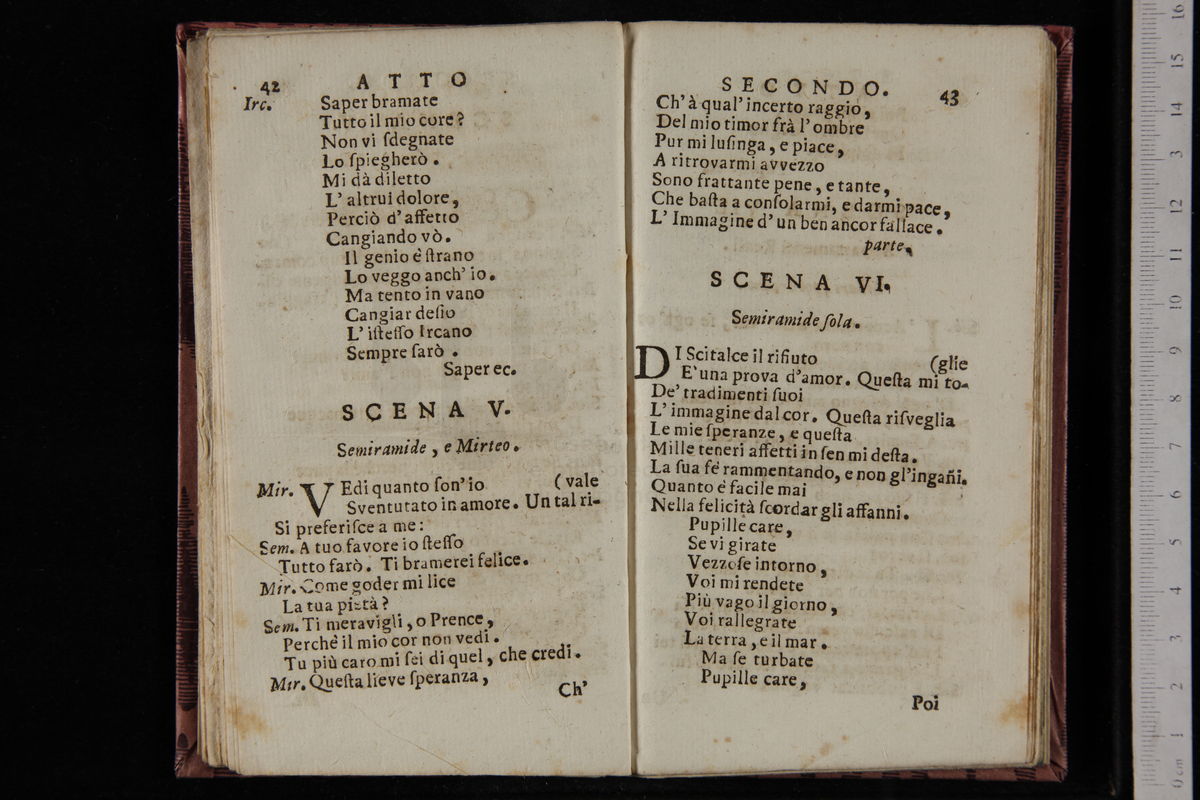 42 ATTO
Irc. Saper bramate
Tutto il mio core?
Non vi ſdegnate
Lo ſpiegherò.
Mi dà diletto
L' altrui dolore,
Perciò d'affetto
Cangiando vò.
Il genio è ſtrano
Lo veggo anch' io.
Ma tento in vano
Cangiar deſio
L' iſteſſo Ircano
Sempre ſarò.
Saper ec.
SCENA V.
Semiramide, e Mirteo.
Mir. VEdi quanto ſon' io (vale
Sventurato in amore. Un tal ri-
Si preferiſce a me:
Sem. A tuo favore io ſteſſo
Tutto farò. Ti bramerei felice.
Mir. Come goder mi lice
La tua pietà?
Sem. Ti meravigli, o Prence,
Perchè il mio cor non vedi.
Tu più caro mi ſei di quel, che credi.
Mir. Queſta lieve ſperanza,
Ch'
SECONDO. 43
Ch' à qual' incerto raggio,
Del mio timor frà l' ombre
Pur mi luſinga, e piace,
A ritrovarmi avvezzo
Sono frattante pene, e tante,
Che baſta a conſolarmi, e darmi pace,
L' Immagine d' un ben ancor fallace.
parte.
SCENA VI.
Semiramide ſola.
DI Scitalce il rifiuto (glie
E' una prova d'amor. Queſta mi to-
De' tradimenti ſuoi
L' immagine dal cor. Queſta riſveglia
Le mie ſperanze, e queſta
Mille teneri affetti in ſen mi deſta.
La ſua fè rammentando, e non gl'ingañi.
Quanto è facile mai
Nella felicità ſcordar gli affanni.
Pupille care,
Se vi girate
Vezzoſe intorno,
Voi mi rendete
Più vago il giorno,
Voi rallegrate
La terra, e il mar.
Ma ſe turbate
Pupille care,
Poi
0 cm 1 2 3 4 5 6 7 8 9 10 11 12 13 14 15 16